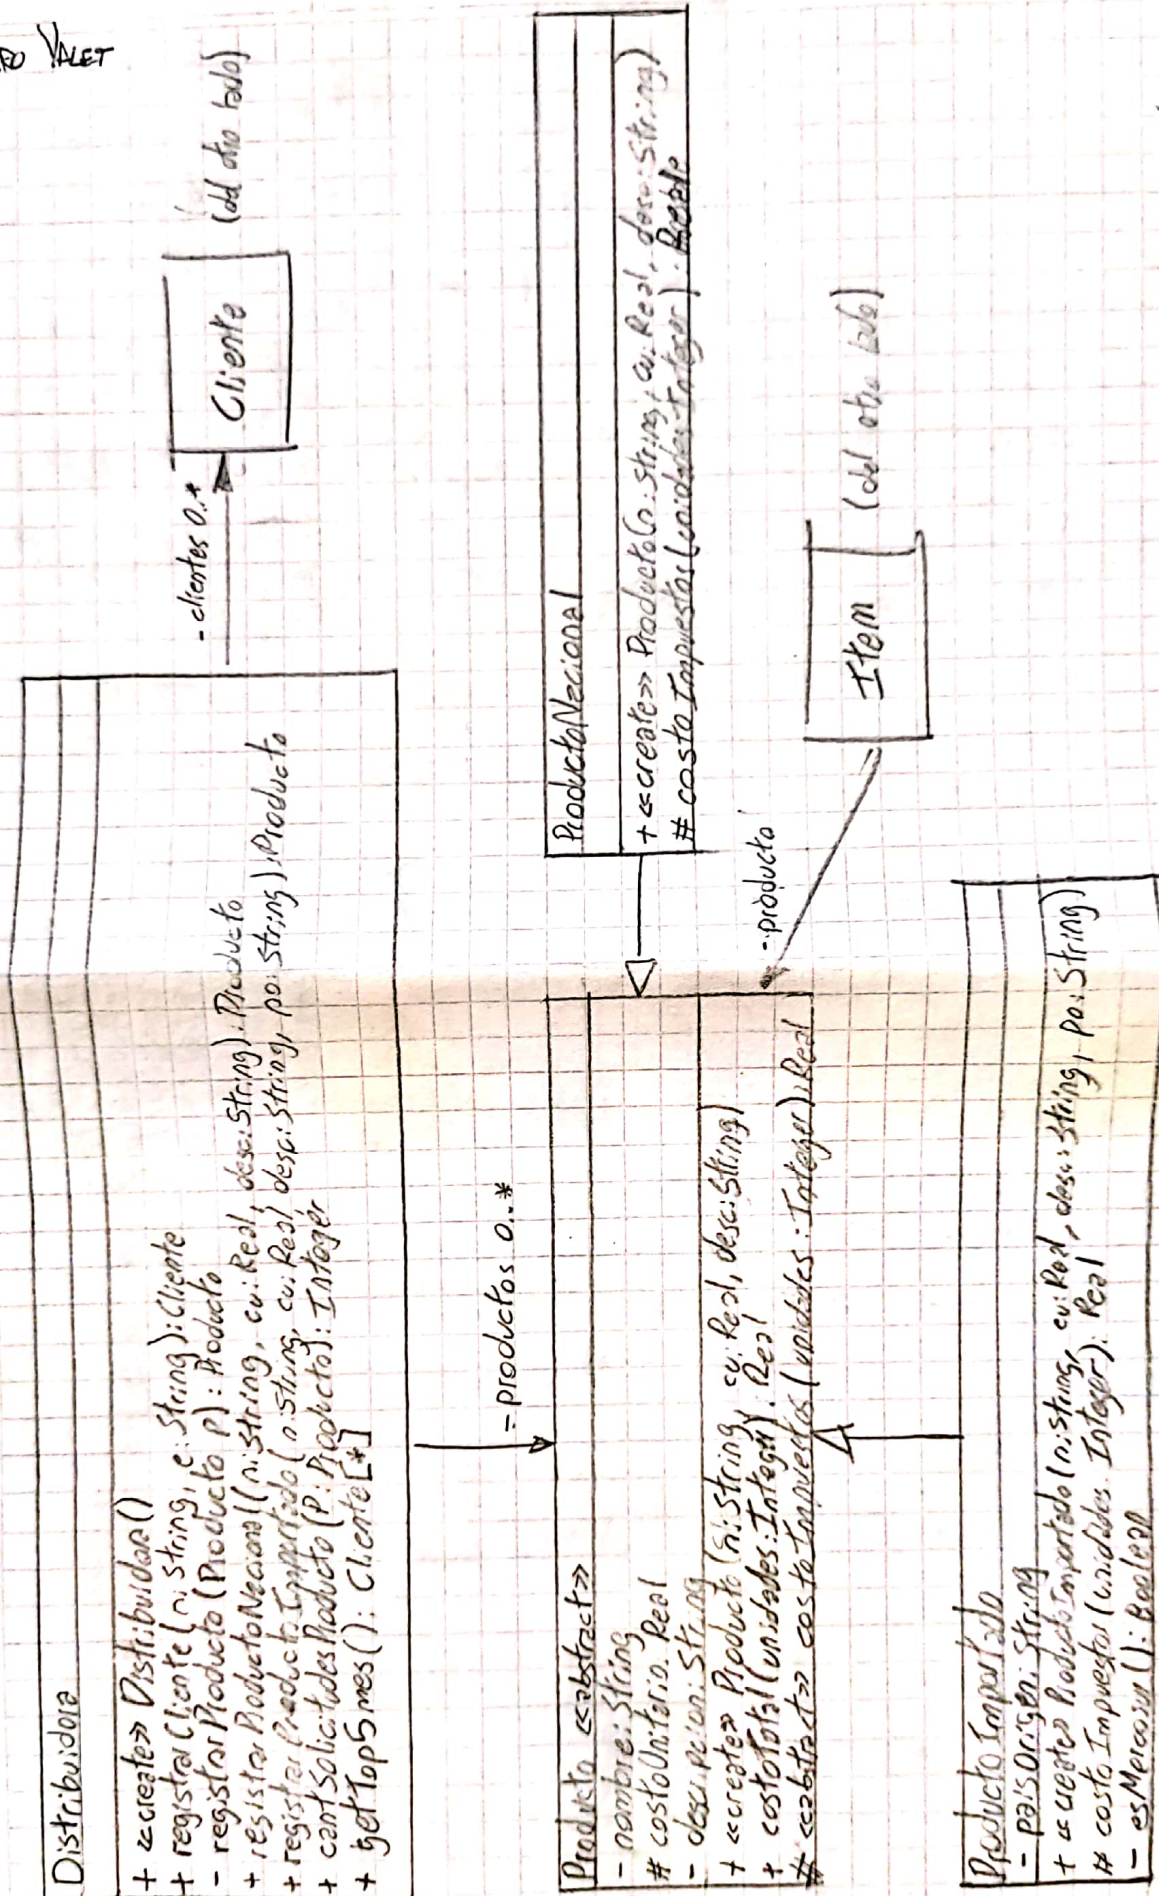 VALET
Distribuidora
+ «create» Distribuidora()
+ registrarCliente(n: String, e: String): Cliente
- registrarProducto(Producto p): Producto
+ registrarProductoNacional(n: String, cu: Real, desc: String): Producto
+ registrarProductoImportado(n: String, cu: Real, desc: String, po: String): Producto
+ cantSolicitudesProducto(P: Producto): Integer
+ getTop5mes(): Cliente[*]
- clientes 0..*
Cliente
(del otro lado)
- productos 0..*
Producto «abstract»
- nombre: String
# costoUnitario: Real
- descripcion: String
+ «create» Producto(n: String, cu: Real, desc: String)
+ costoTotal(unidades: Integer): Real
# «abstract» costoImpuestos(unidades: Integer): Real
ProductoNacional
+ «create» Producto(n: String, cu: Real, desc: String)
# costoImpuestos(unidades: Integer):
- producto
Item
(del otro lado)
ProductoImportado
- paisOrigen: String
+ «create» ProductoImportado(n: String, cu: Real, desc: String, po: String)
# costoImpuestos(unidades: Integer): Real
- esMercosur(): Boolean